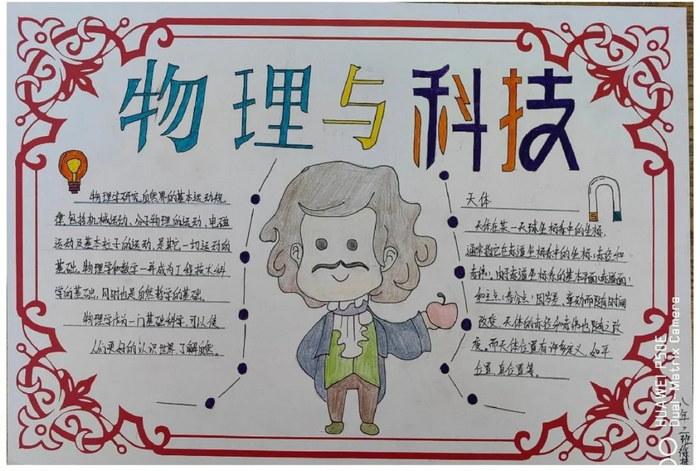 物理与科技
物理学研究自然界的基本运动规
律,包括机械运动、分子物理的运动,电磁
运动及基本粒子的运动,是其它一切运动的
基础,物理学和数学一并成为工程技术科
学的基础,同时也是自然哲学的基础。
物理学作为一门基础科学,可以使
人们更好的认识世界,了解自然。
天体
天体在某一天球坐标系中的坐标,
通常指它在赤道坐标系中的坐标:赤经和
赤纬。由于赤道坐标系的基本平面(赤道面)
和主点(春分点)因岁差、章动而随时间
改变,天体的赤经和赤纬也随之改
变。而天体位置有许多定义,如平
位置,真位置等。
八年
二班
HUAWEI P50E
Dual-Matrix Camera